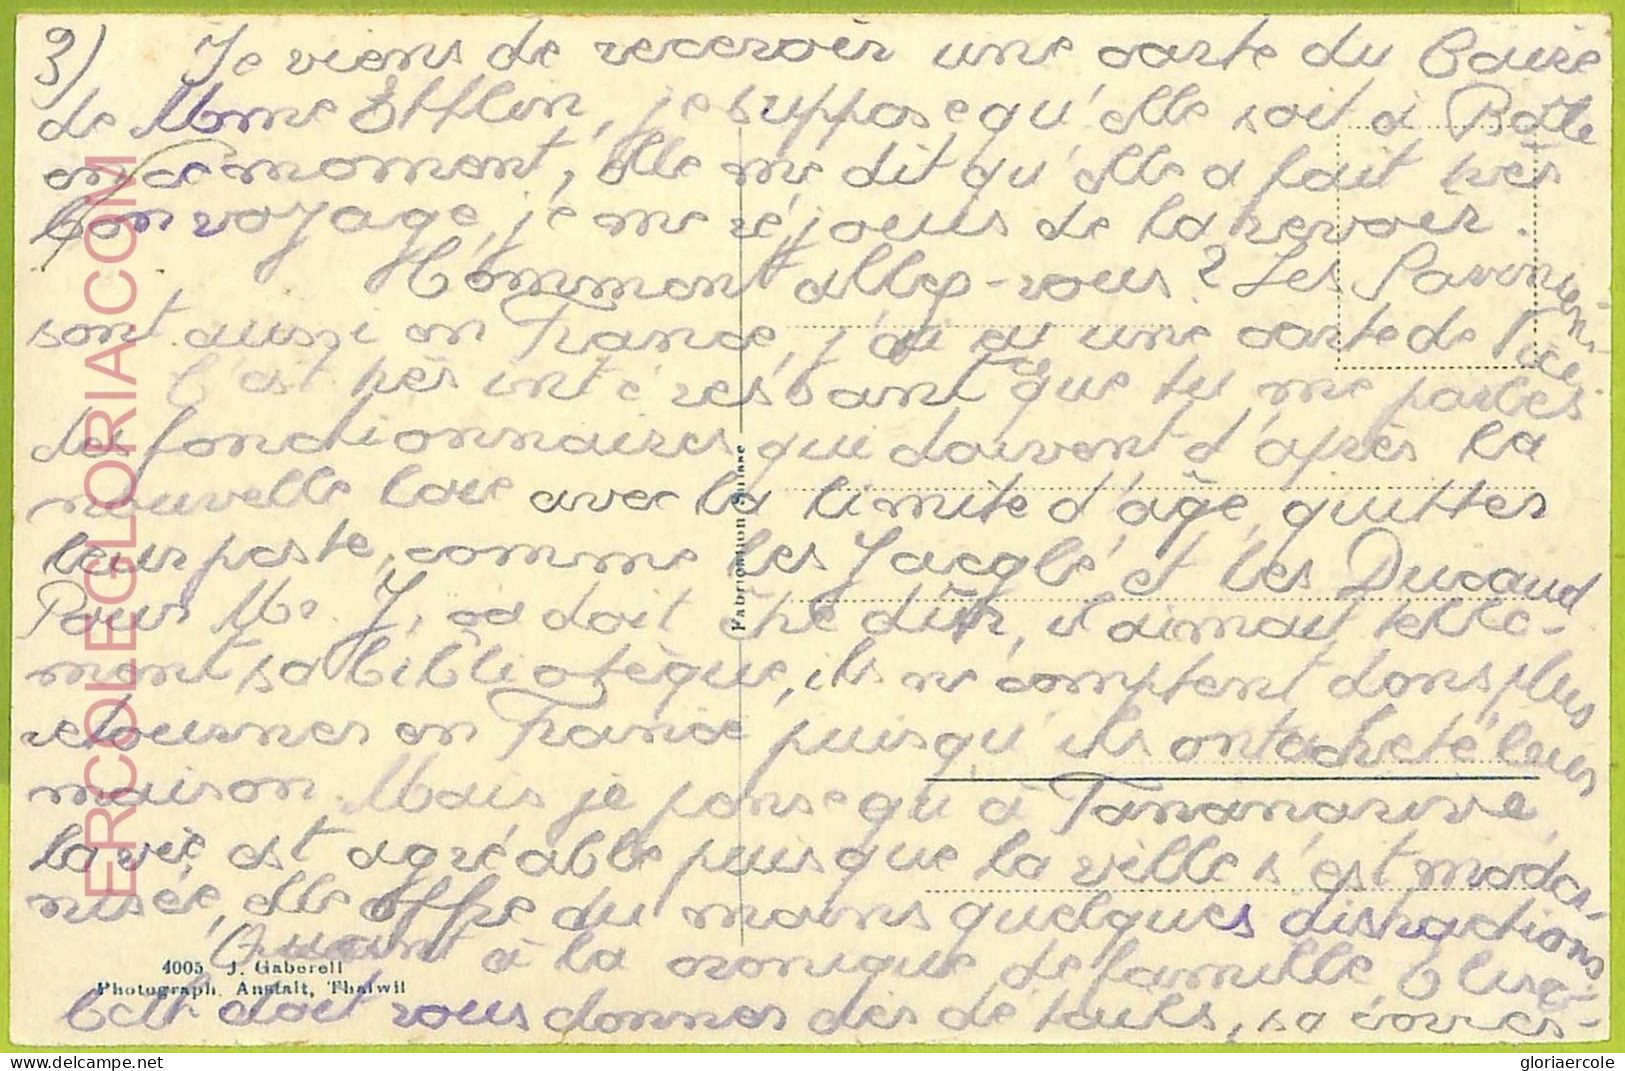 3) Je viens de recevoir une carte du Caire
de Mme Etflin, je suppose qu'elle soit à Bâle
en ce moment, elle me dit qu'elle a fait très
bon voyage, je me réjouis de la revoir.
Comment allez-vous ? Les
sont aussi en France, j'ai eu une carte de Nice.
C'est très intéressant ce que tu me parles
des fonctionnaires qui doivent d'après la
nouvelle loie avec la limite d'âge, quitter
leur poste, comme les Jaeglé et les Ducaud
Pour Mr. J, ça doit être dûr, il aimait telle-
ment sa bibliotèque, ils ne comptent dons plus
retourner en France puisqu'ils ont acheté leur
maison. Mais je pense qu'à Tananarive,
la vie est agréable puisque la ville s'est moder-
nisée, elle offre du moins quelques distractions
Quant à la cronique de famille Elisa-
beth doit vous donner des détails, sa corres-
Fabrication Suisse
4005 J. Gaberell
Photograph. Anstalt, Thalwil
ERCOLEGLORIA.COM
gloriaercole